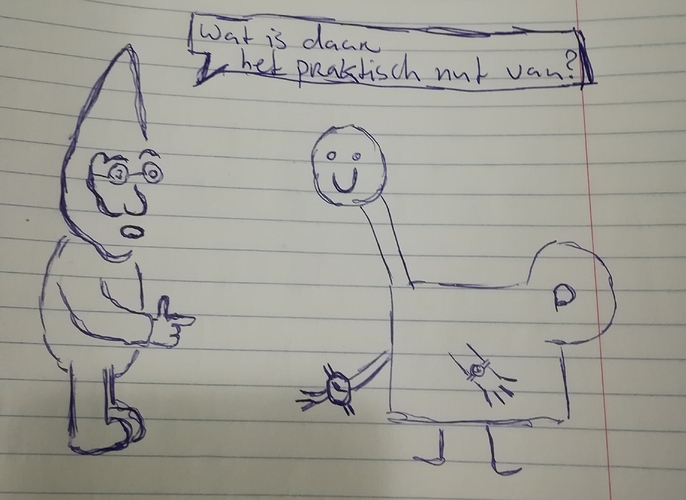 Wat is daar
het praktisch nut van?
P